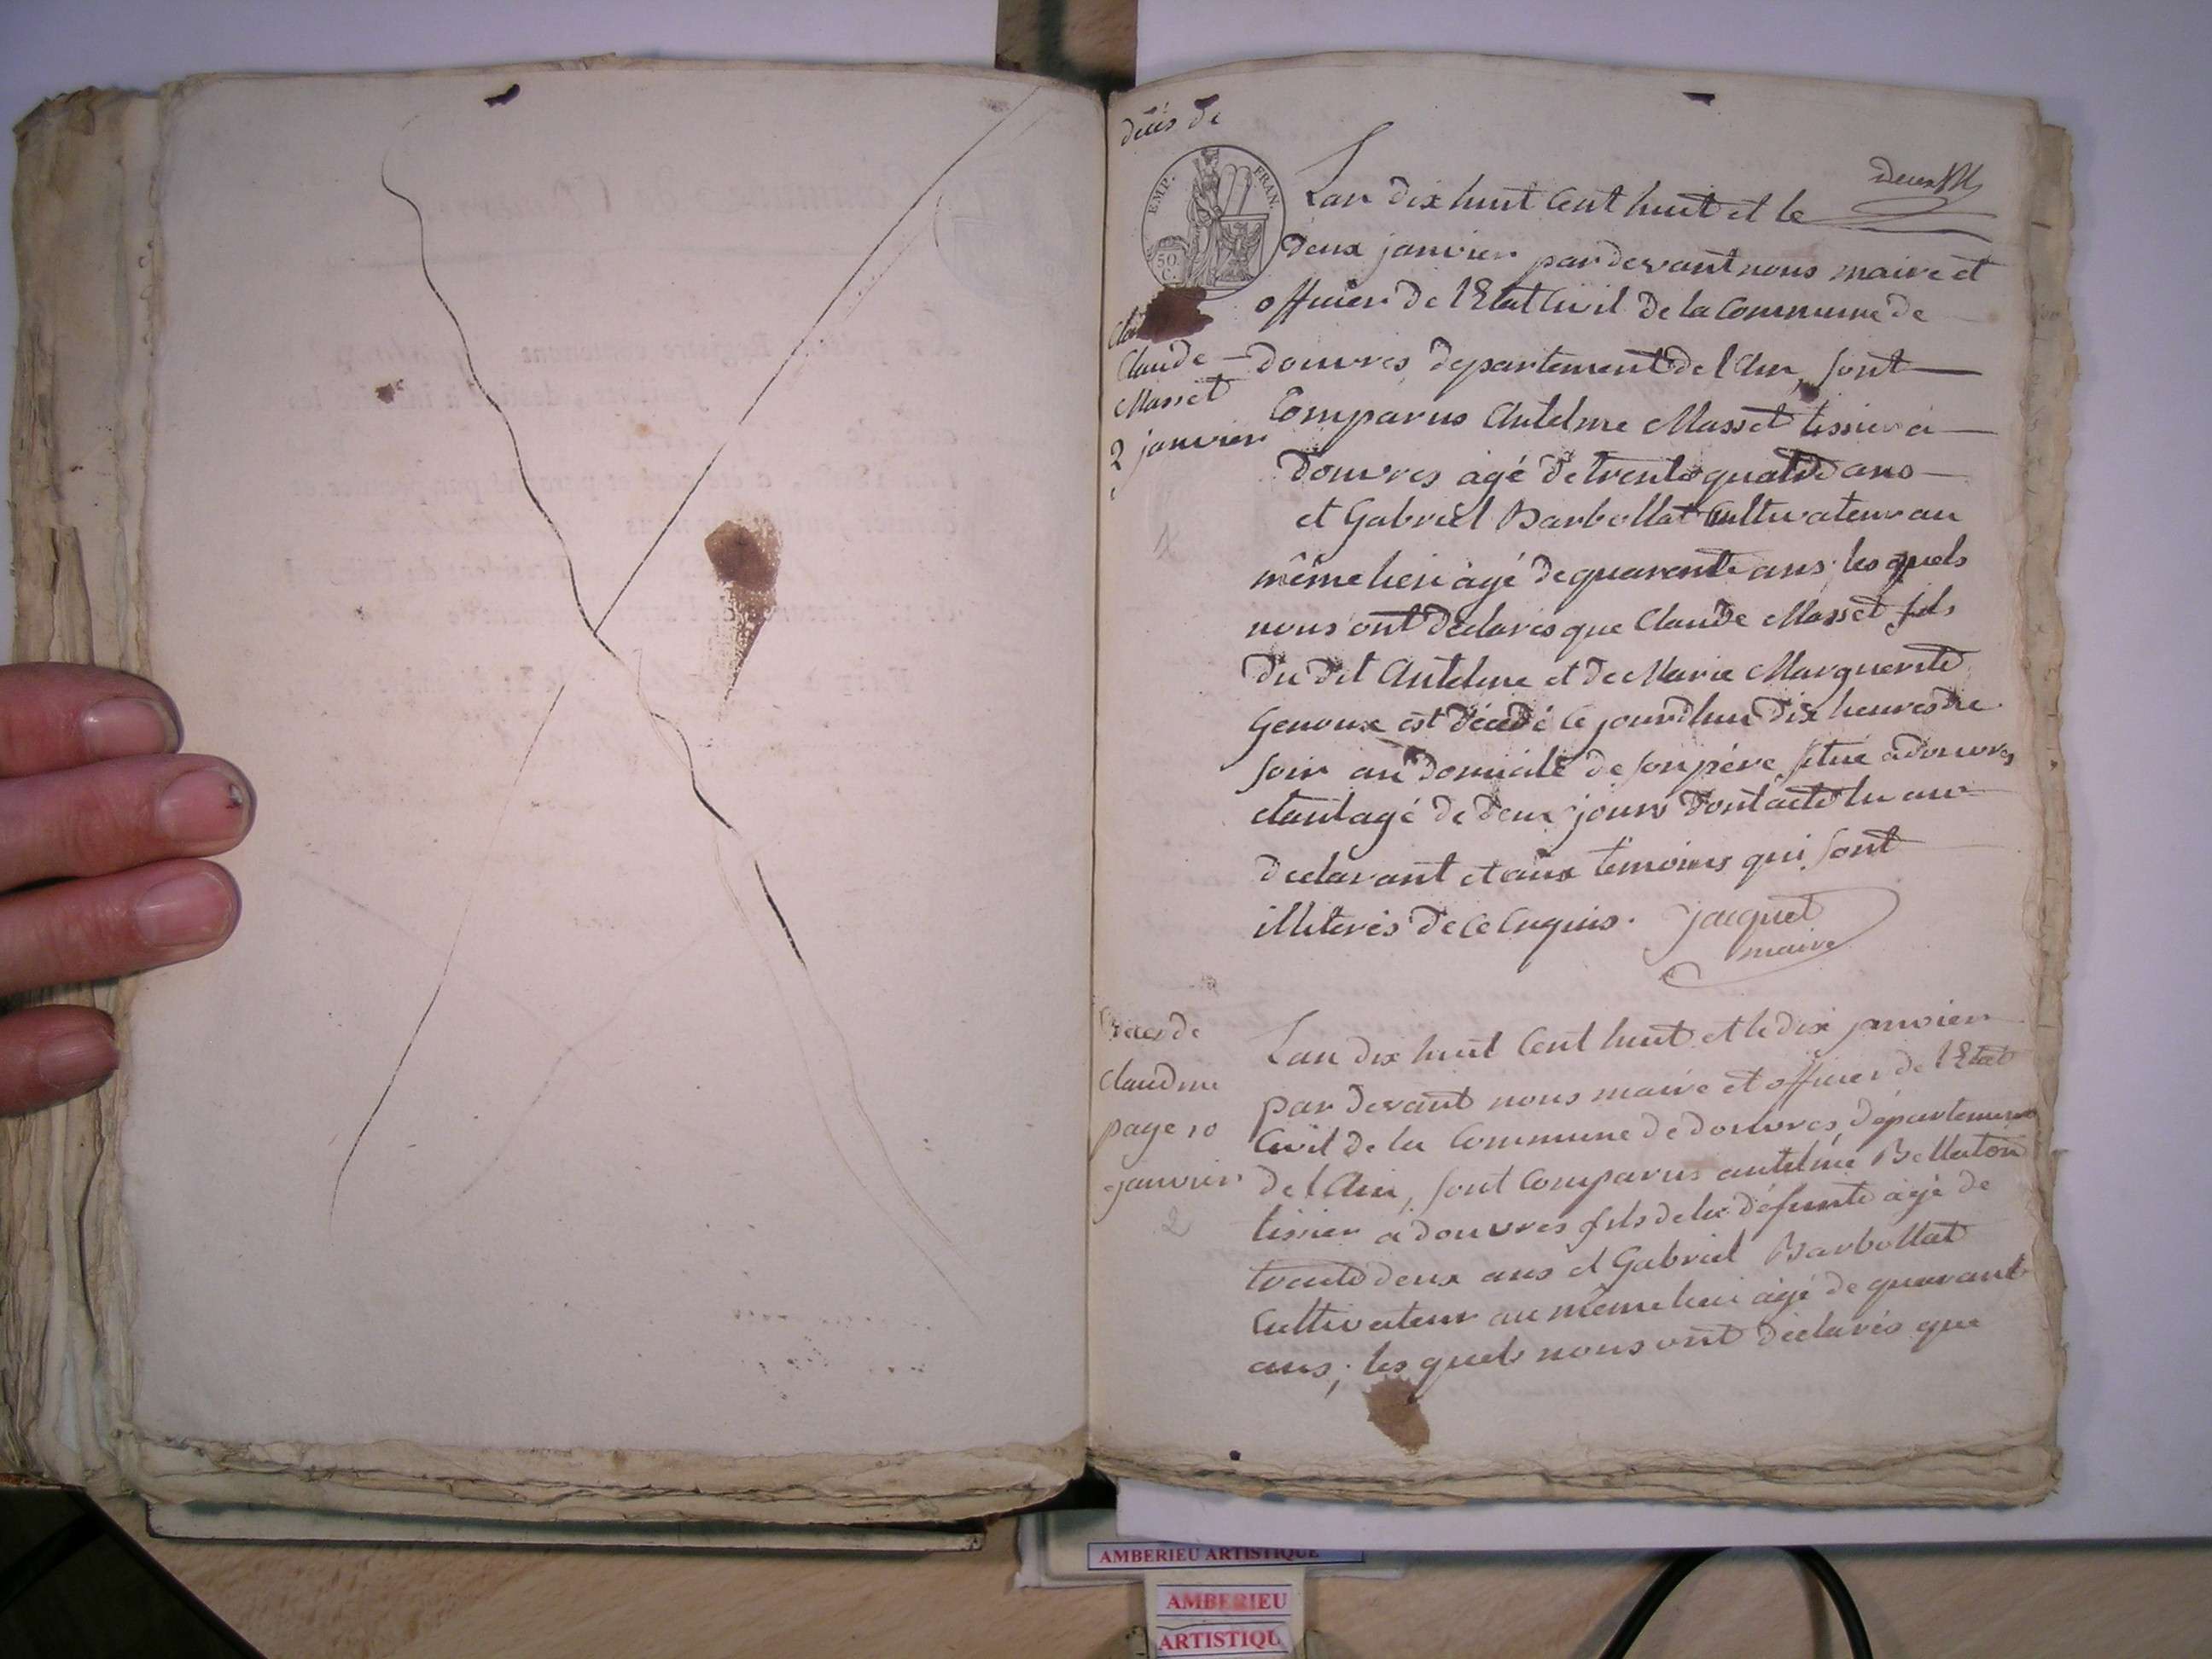 décès de
EMP. FRAN.
50 C.
Claude
Masset
2 janvier
1
Lan dix huit Cent huit et le
deux janvier par devant nous maire et
officier de l'Etat Civil de la Commune de
douvres, departement de l'Ain, sont
Comparus Antelme Masset tissier a
douvres agé de trente quatre ans
et Gabriel Barbollat Cultivateur au
même lieu agé de quarante ans les quels
nous ont declarés que Claude Masset fils
du dit Antelme et de Marie Marguerite
Genoux est décedé Ce jourdhui dix heures du
soir au domicile de son père situé a douvres
etant agé de deux jours dont acte lu au
declarant et aux temoins qui sont
illiterés de Ce Enquis. Jacquet
maire
Deces de
Claudine
page 10
janvier
2
Lan dix huit Cent huit et le dix janvier
par devant nous maire et officier de l'Etat
Civil de la Commune de douvres, département
de l'Ain, sont Comparus antelme Bellaton
tissier a douvres fils de la défunte agé de
trente deux ans et Gabriel Barbollat
Cultivateur au même lieu agé de quarante
ans; les quels nous ont déclarés que
AMBERIEU ARTISTIQUE
AMBERIEU
ARTISTIQU